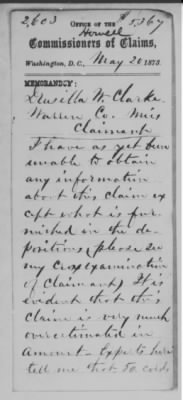 2,603 $5,367
OFFICE OF THE
Howell
Commissioners of Claims,
Washington, D.C., May 20 1873.
MEMORANDUM:
Drusilla W. Clarke
Warren Co. Miss
Claimant
I have as yet been
unable to obtain
any information
about this claim ex
cept what is fur
nished in the de-
positions, (please see
my cross examination
of claimant) It is
evident that this
claim is very much
overestimated in
amount - Experts here
tell me that 50 cords